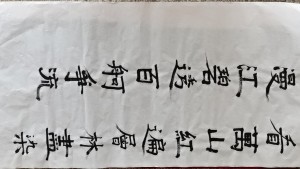 看萬山紅遍層林盡染
漫江碧透百舸争流